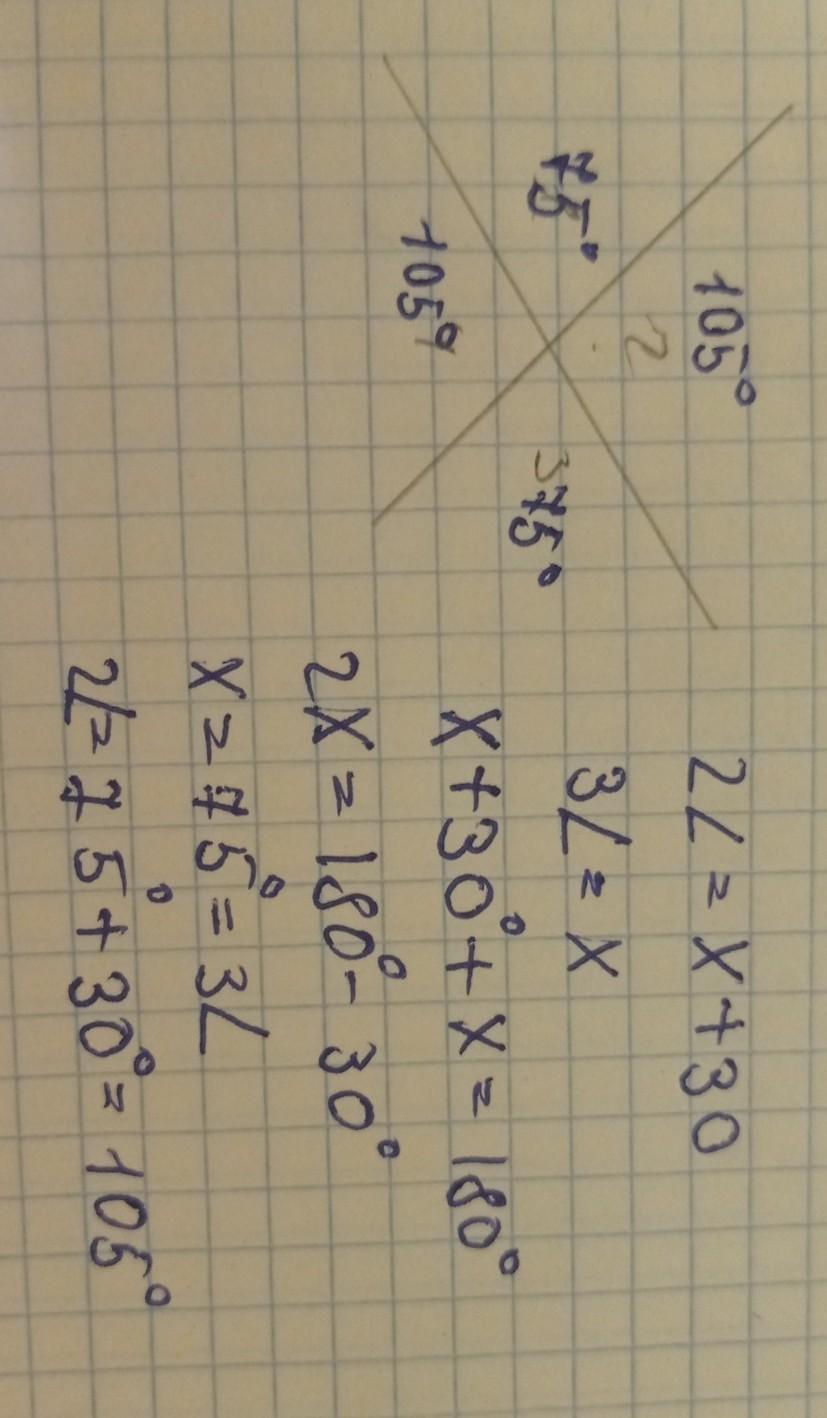 105°
2
75°
3 75°
105°
2∠ = x + 30
3∠ = x
x + 30° + x = 180°
2x = 180° - 30°
x = 75° = 3∠
2∠ = 75° + 30° = 105°